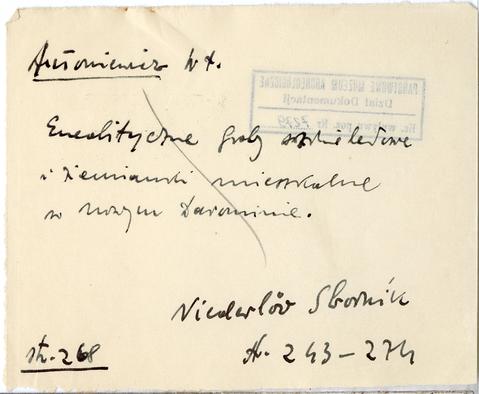 Antoniewicz Wł.
PAŃSTWOWE MUZEUM ARCHEOLOGICZNE
Dział Dokumentacji
Nr. 7279
Eneolityczne groby szkieletowe
i ziemianki mieszkalne
w Nowym Darominie.
Niederlův Sborník
str. 268
st. 243-274